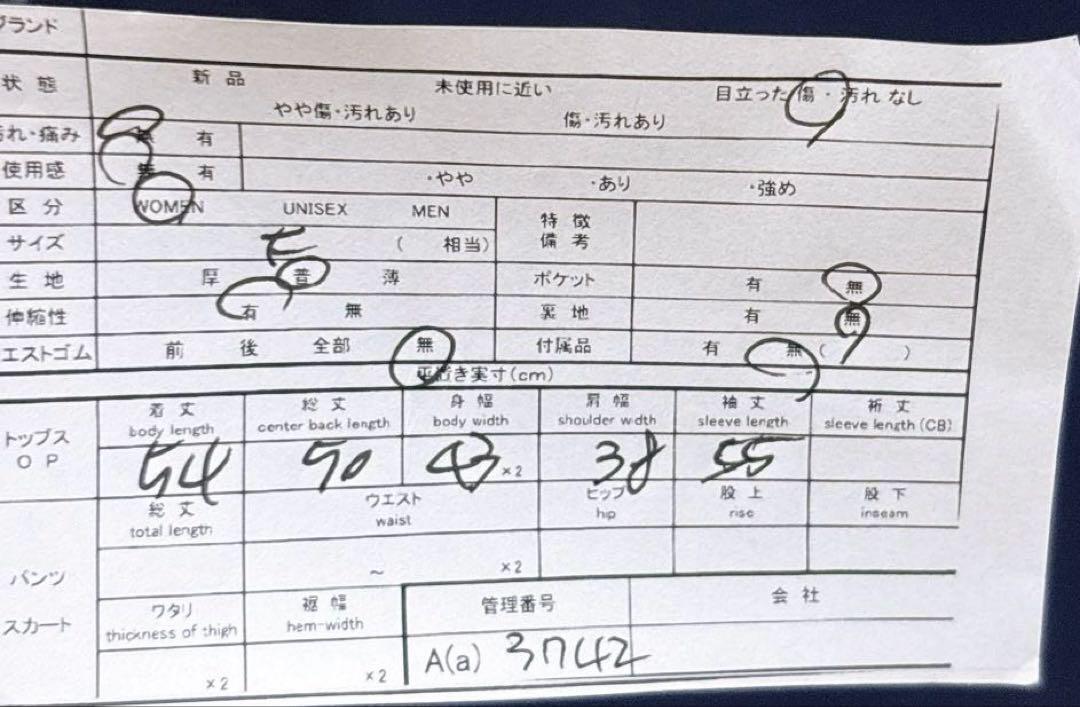 ブランド
状態 新品 未使用に近い 目立った傷・汚れなし
やや傷・汚れあり 傷・汚れあり
汚れ・痛み 有
使用感 無 有 ・やや ・あり ・強め
区分 WOMEN UNISEX MEN 特徴
サイズ ( 相当) 備考
生地 厚 普 薄 ポケット 有 無
伸縮性 有 無 裏地 有 無
エストゴム 前 後 全部 無 付属品 有 無 ( )
平置き実寸(cm)
着丈 総丈 身幅 肩幅 袖丈 裄丈
body length center back length body width shoulder width sleeve length sleeve length (CB)
トップス
OP
54 50 43 ×2 38 55
総丈 ウエスト ヒップ 股上 股下
total length waist hip rise inseam
パンツ ~ ×2
ワタリ 裾幅 管理番号 会社
スカート
thickness of thigh hem-width
×2 ×2 A(a) 3742